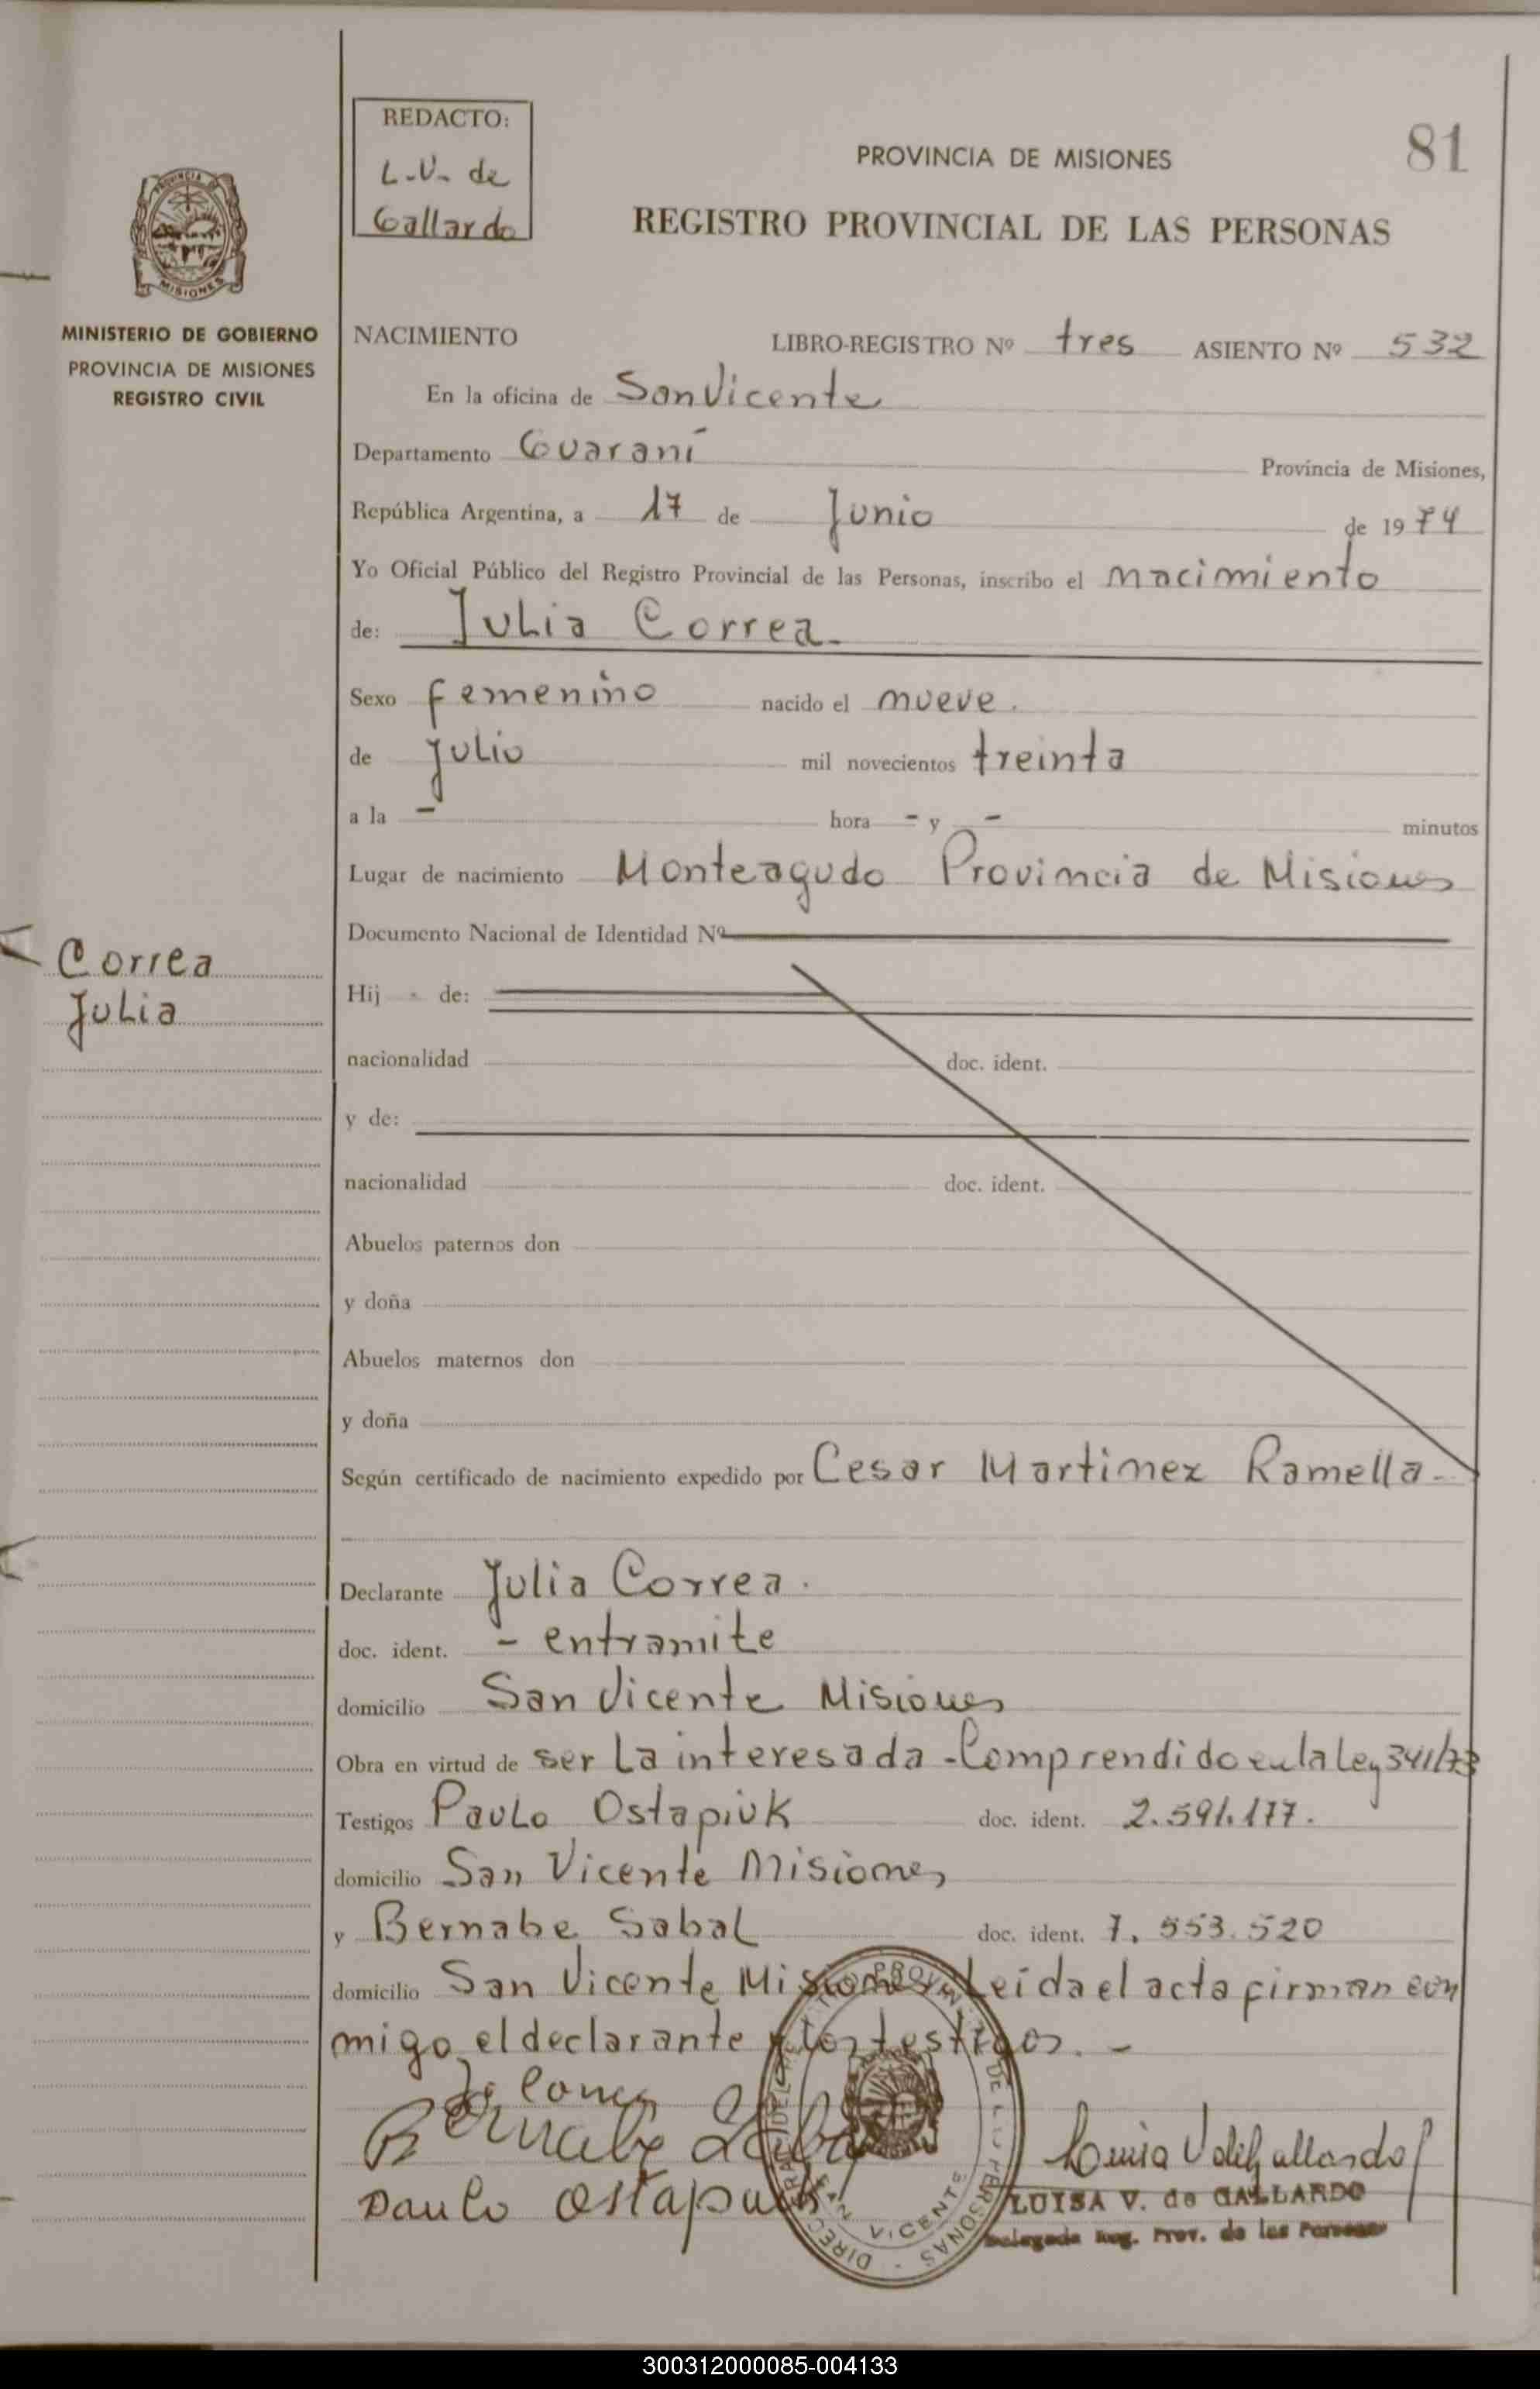 REDACTO:
L.V. de
Gallardo
81
PROVINCIA DE MISIONES
REGISTRO PROVINCIAL DE LAS PERSONAS
PROVINCIA DE
MISIONES
MINISTERIO DE GOBIERNO
PROVINCIA DE MISIONES
REGISTRO CIVIL
NACIMIENTO LIBRO-REGISTRO Nº tres ASIENTO Nº 532
En la oficina de San Vicente
Departamento Guaraní Provincia de Misiones,
República Argentina, a 17 de Junio de 1974
Yo Oficial Público del Registro Provincial de las Personas, inscribo el nacimiento
de: Julia Correa.
Sexo femenino nacido el nueve.
de julio mil novecientos treinta
a la - hora - y - minutos
Lugar de nacimiento Monteagudo Provincia de Misiones
Documento Nacional de Identidad Nº
Correa
Julia
Hij - de:
nacionalidad doc. ident.
y de:
nacionalidad doc. ident.
Abuelos paternos don
y doña
Abuelos maternos don
y doña
Según certificado de nacimiento expedido por Cesar Martinez Ramella-
Declarante Julia Correa.
doc. ident. - entramite
domicilio San Vicente Misiones
Obra en virtud de ser La interesada - Comprendido en la Ley 341/73
Testigos Paulo Ostapiuk doc. ident. 2.591.177.
domicilio San Vicente Misiones
y Bernabe Sabal doc. ident. 7.553.520
domicilio San Vicente Misiones Leida el acta firman con
migo el declarante y los testigos. -
Bernabe
Paulo Ostapiuk
SAN VICENTE
DE LAS PERSONAS
Luisa V de Gallardo
LUISA V. de GALLARDO
Delegada Reg. Prov. de las Personas
300312000085-004133